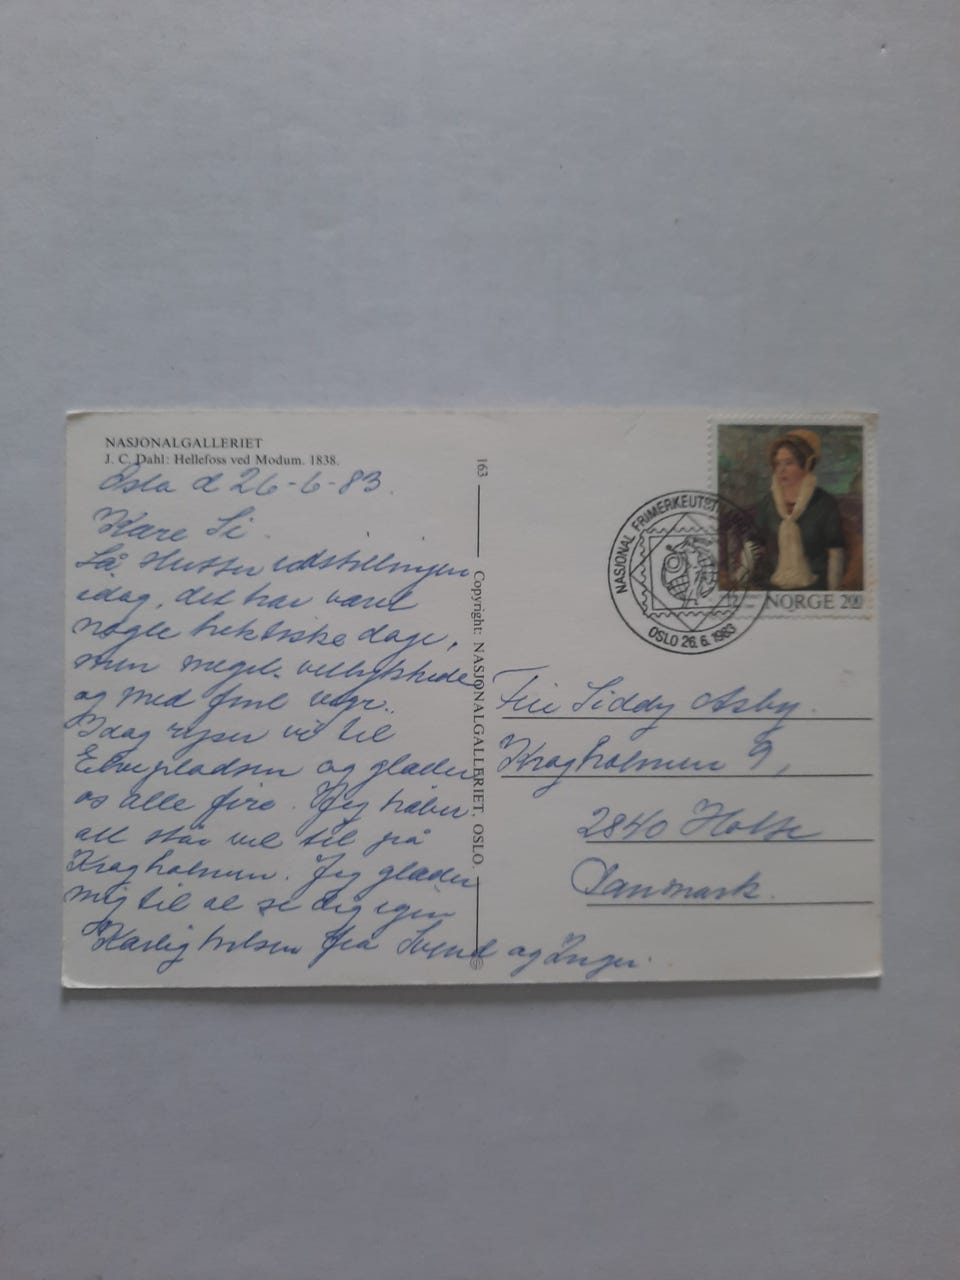 NASJONALGALLERIET
J. C. Dahl: Hellefoss ved Modum. 1838.
Oslo d 26-6-83.
Kære Si.
Så slutter udstillingen
idag, det har været
nogle hektiske dage,
men meget vellykkede
og med fint vejr.
Idag rejser vi til
og glæder
os alle fire. Jeg håber
alt står vel til på
Kragholmen. Jeg glæder
mig til at se dig igen
Kærlig hilsen fra Svend og Inger.
163
Copyright: NASJONALGALLERIET, OSLO.
NASJONAL FRIMERKEUTSTILLING
OSLO 26.6.1983
NORGE 200
Siddy Asby.
Kragholmen 9,
2840 Holte
Danmark.